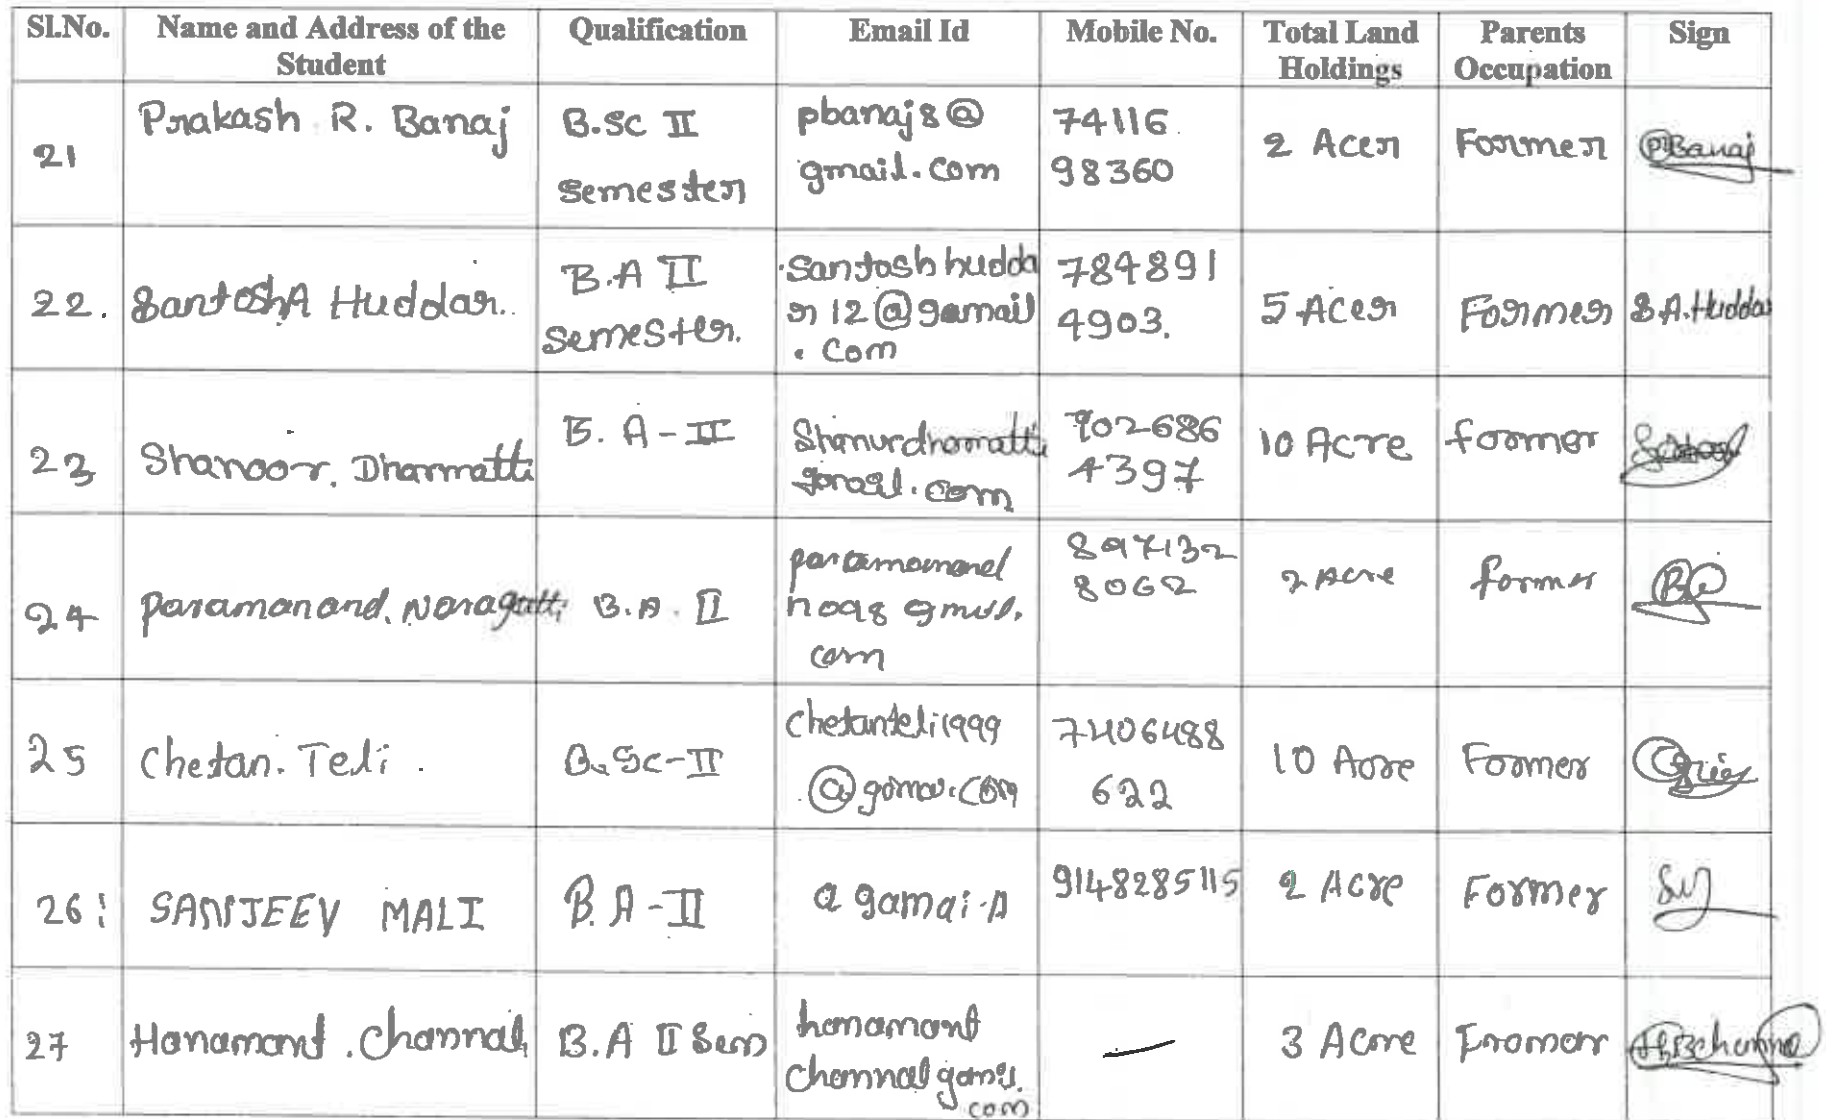 Sl.No. Name and Address of the Student Qualification Email Id Mobile No. Total Land Holdings Parents Occupation Sign
21 Prakash R. Banaj B.sc II semester pbanaj8@ gmail.com 74116 98360 2 Acer Former PBanaj
22. Santosh A Huddar. B.A II semester. santosh hudda r 12 @ gamail . com 784891 4903. 5 Acer Former S.A.Huddar
23 Shanoor. Dharmatti B. A - II 902686 4397 10 Acre former
24 paramanand. Naragatti B.A. II com 897132 8062 2 Acre former
25 Chetan. Teli. B.Sc-II chetanteli1999 7406488 622 10 Acre Former
26 SANJEEV MALI B.A-II @ gamai.A 9148285115 2 Acre Former
27 Hanamant. Channal B.A II Sem hanamant — 3 Acre Fromar